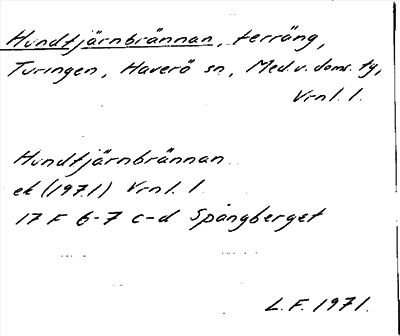 Hundtjärnbrännan, terräng,
Turingen, Haverö sn, Med. v. doms. tg,
Vrnl. l.
Hundtjärnbrännan
ek (1971) Vrnl. l.
17 F 6-7 c-d Spångberget
L. F. 1971.